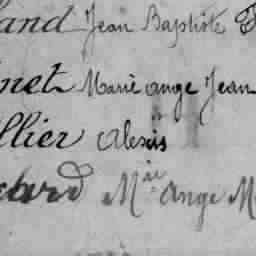 land Jean Baptiste
inet Marie ange Jean
llier Alexis
M.ie Ange M